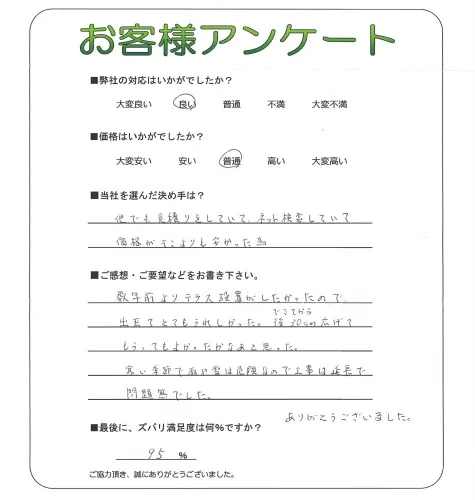 お客様アンケート
■弊社の対応はいかがでしたか？
大変良い 良い 普通 不満 大変不満
■価格はいかがでしたか？
大変安い 安い 普通 高い 大変高い
■当社を選んだ決め手は？
他でも見積りをしていて、ネット検索していて
価格がそこよりも安かった為
■ご感想・ご要望などをお書き下さい。
数年前よりテラス設置がしたかったので、
出来てとてもうれしかった。できてから後30cm広げて
もらってもよかったかなあと思った。
寒い季節で雨や雪は危険なので工事は延長で
問題無でした。
ありがとうございました。
■最後に、ズバリ満足度は何%ですか？
95 %
ご協力頂き、誠にありがとうございました。